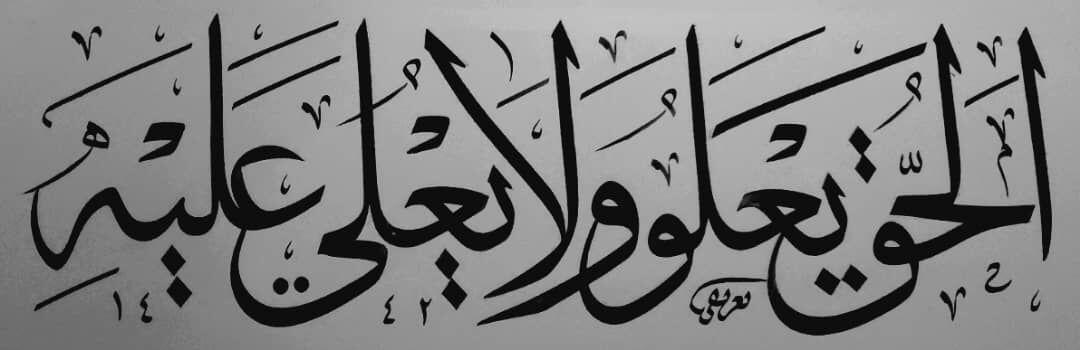 اَلْحَقُّ يَعْلُو وَلَا يُعْلَى عَلَيْهِ
١٤٤٢